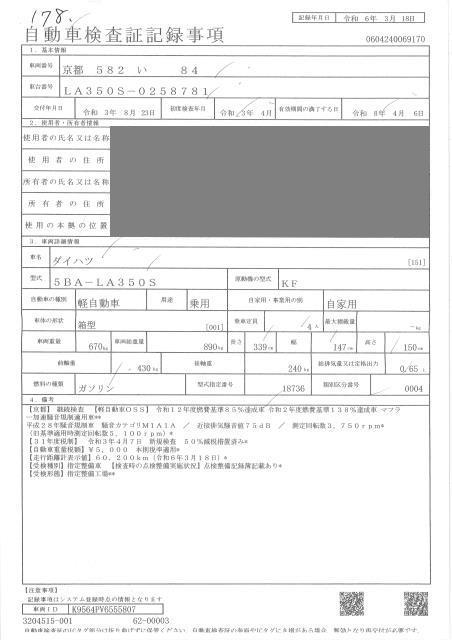 178.
記録年月日 令和 6年 3月 18日
自動車検査証記録事項 0604240069170
1. 基本情報
車両番号 京都 582 い 84
車台番号 LA350S-0258781
交付年月日 令和 3年 8月 23日 初度検査年月 令和 3年 4月 有効期間の満了する日 令和 8年 4月 6日
2. 使用者・所有者情報
使用者の氏名又は名称
使用者の住所
所有者の氏名又は名称
所有者の住所
使用の本拠の位置
3. 車両詳細情報
車名 ダイハツ [151]
型式 5BA-LA350S 原動機の型式 KF
自動車の種別 軽自動車 用途 乗用 自家用・事業用の別 自家用
車体の形状 箱型 [001] 乗車定員 4人 最大積載量 -kg
車両重量 670kg 車両総重量 890kg 長さ 339cm 幅 147cm 高さ 150cm
前軸重 430kg 後軸重 240kg 総排気量又は定格出力 0.65 L
燃料の種類 ガソリン 型式指定番号 18736 類別区分番号 0004
4. 備考
【京都】 継続検査 【軽自動車OSS】 令和12年度燃費基準85%達成車 令和2年度燃費基準138%達成車 マフラ
ー加速騒音規制適用車**
平成28年騒音規制車 騒音カテゴリM1A1A / 近接排気騒音値75dB / 測定回転数3,750rpm*
(旧基準適用時測定回転数5,100rpm)*
【31年度税制】 令和3年4月7日 新規検査 50%減税措置済み*
【自動車重量税額】¥5,000 本則税率適用*
【走行距離計表示値】60,200km(令和6年3月18日)*
【受検種別】指定整備車 【検査時の点検整備実施状況】点検整備記録簿記載あり*
【受検形態】指定整備工場**
【注意事項】
記録事項はシステム登録時点の情報となります
車両ID K9564PV6555807
3204515-001 62-00003